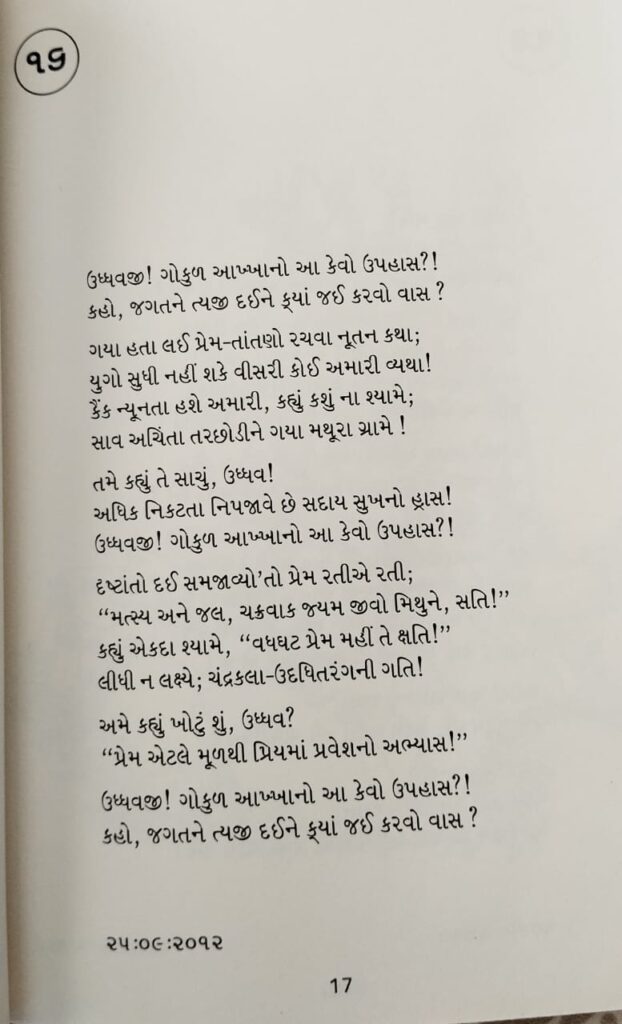 ૧૭
ઉધ્ધવજી! ગોકુળ આખ્ખાનો આ કેવો ઉપહાસ?!
કહો, જગતને ત્યજી દઈને ક્યાં જઈ કરવો વાસ ?
ગયા હતા લઈ પ્રેમ-તાંતણો રચવા નૂતન કથા;
યુગો સુધી નહીં શકે વીસરી કોઈ અમારી વ્યથા!
કૈંક ન્યૂનતા હશે અમારી, કહ્યું કશું ના શ્યામે;
સાવ અચિંતા તરછોડીને ગયા મથૂરા ગ્રામે !
તમે કહ્યું તે સાચું, ઉધ્ધવ!
અધિક નિકટતા નિપજાવે છે સદાય સુખનો હ્રાસ!
ઉધ્ધવજી! ગોકુળ આખ્ખાનો આ કેવો ઉપહાસ?!
દૃષ્ટાંતો દઈ સમજાવ્યો'તો પ્રેમ રતીએ રતી;
“મત્સ્ય અને જલ, ચક્રવાક જ્યમ જીવો મિથુને, સતિ!”
કહ્યું એકદા શ્યામે, “વધઘટ પ્રેમ મહીં તે ક્ષતિ!”
લીધી ન લક્ષ્યે; ચંદ્રકલા-ઉદધિતરંગની ગતિ!
અમે કહ્યું ખોટું શું, ઉધ્ધવ?
“પ્રેમ એટલે મૂળથી પ્રિયમાં પ્રવેશનો અભ્યાસ!”
ઉધ્ધવજી! ગોકુળ આખ્ખાનો આ કેવો ઉપહાસ?!
કહો, જગતને ત્યજી દઈને ક્યાં જઈ કરવો વાસ ?
૨૫:૦૯:૨૦૧૨
17